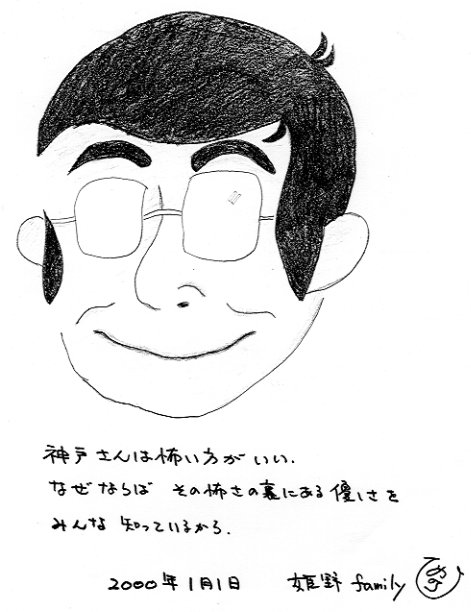 神戸さんは怖い方がいい.
なぜならば その怖さの裏にある優しさを
みんな 知っているから.
2000年1月1日 姫野 family